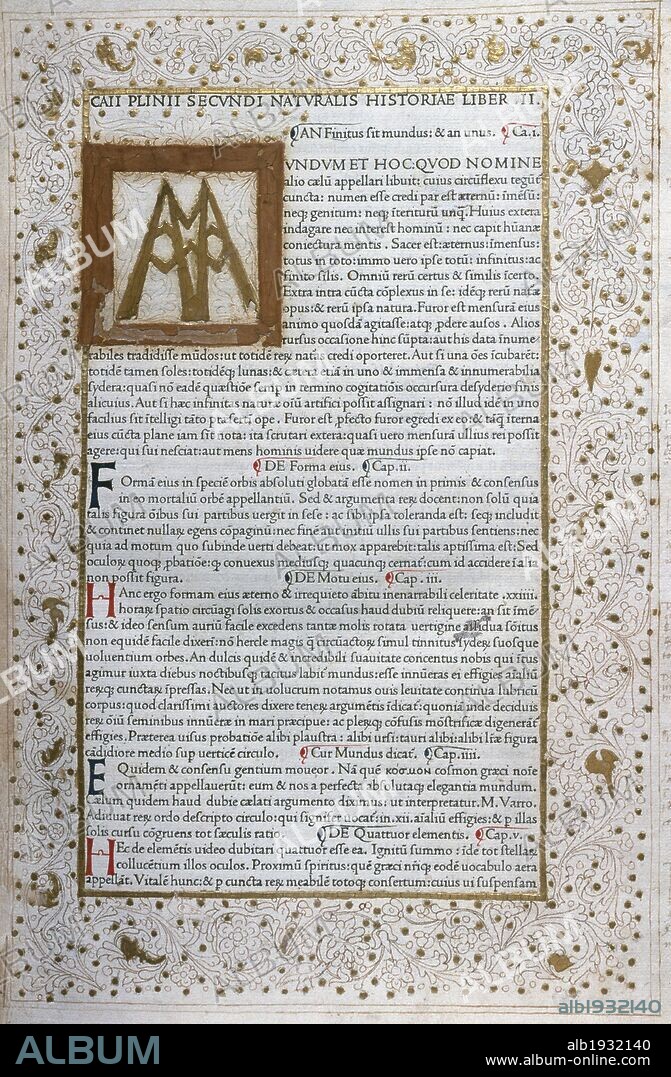 CAII PLINII SECVNDI NATVRALIS HISTORIAE LIBER .II.
AN Finitus sit mundus: & an unus. Ca.i.
M VNDVM ET HOC. QVOD NOMINE
alio cælū appellari libuit: cuius circūflexu tegūt̃
cuncta: numen esse credi par est æternū: īmēsū:
neq; genitum: neq; īteriturū unq̄. Huius extera
indagare nec īterest hominū: nec capit hūanæ
coniectura mentis. Sacer est: æternus: īmensus:
totus in toto: immo uero ipse totū: infinitus: ac
finito sīlis. Omniū rerū certus & similis īcerto.
Extra intra cūcta cōplexus in se: idēq; rerū natæ
opus: & rerū ipsa natura. Furor est mensurā eius
animo quosdā agitasse: atq; ꝓdere ausos. Alios
rursus occasione hinc sūpta: aut his data īnume
rabiles tradidisse mūdos: ut totidē reꝝ natī credi oporteret. Aut si una ōes īcubarēt:
totidē tamen soles: totidēq; lunas: & cætera etiā in uno & immensa & innumerabilia
sydera: quasi nō eadē quæstiōe semp in termino cogitatiōis occursura desyderio finis
alicuius. Aut si hæc infinitas naturæ oīū artifici possit assignari: nō illud idē in uno
facilius sit ītelligi tāto præsertī ope. Furor est ꝓfecto furor egredi ex eo: & tāq̄ īterna
eius cūcta plane iam sīt nota: ita scrutari extera: quasi uero mensurā ullius rei possit
agere: qui sui nesciat: aut mens hominis uidere quæ mundus ipse nō capiat.
DE Forma eius. Cap.ii.
F Ormā eius in speciē orbis absoluti globatā esse nomen in primis & consensus
in eo mortaliū orbē appellantiū. Sed & argumēta reꝝ docent: non solū quia
talis figura oībus sui partibus uergit in sese: ac sibi ipsa toleranda est: seq; includit
& continet nullaꝝ egens cōpaginū: nec finē aut initiū ullis sui partibus sentiens: nec
quia ad motum quo subinde uerti debeat ut mox apparebit: talis aptissima est: Sed
oculoꝝ quoq; ꝓbatiōe: q̄ conuexus mediusq; quacunq; cernat̃: cum id accidere ī alia
non possit figura. DE Motu eius. Cap. iii.
H Anc ergo formam eius æterno & irrequieto ābitu inenarrabili celeritate .xxiiii.
horaꝝ spatio circūagi solis exortus & occasus haud dubiū reliquere: an sit īmē
sus: & ideo sensum auriū facile excedens tantæ molis rotata uertigine assidua sōitus
non equidē facile dixerī: nō hercle magis q̄ circūactoꝝ simul tinnitus sydeꝝ suosque
uoluentium orbes. An dulcis quidā & incredibili suauitate concentus nobis qui ītus
agimur iuxta diebus noctibusq; tacitus labit̃ mundus: esse innūeras ei effigies aīaliū
reꝝq; cunctaꝝ īpressas. Ne ut in uolucrum notamus ouis leuitate continua lubricū
corpus: quod clarissimi auctores dixere teneꝝ argumētis īdicat̃: quonia īnde deciduis
reꝝ oīū seminibus innūeræ in mari præcipue: ac pleꝝq; cōfusis mōstrificæ digenerāt̃
effigies. Præterea uisus probatiōe alibi plaustra: alibi ursi: tauri alibi: alibi lr̄æ figura
cādidiore medio sup uerticē circulo. Cur Mundus dicat̃. Cap.iiii.
E Quidem & consensu gentium moueor. Nā quē κοσμον cosmon græci noīe
ornamēti appellauerūt: eum & nos a perfecta absolutaq; elegantia mundum.
Cælum quidem haud dubie cælati argumento diximus: ut interpretatur. M. Varro.
Adiuuat reꝝ ordo descripto circulo: qui signifer uocat̃: in .xii. aīaliū effigies: & p illas
solis cursu cōgruens tot sæculis ratio. DE Quattuor elementis. Cap.v.
H Ec de elemētis uideo dubitari quattuor esse ea. Ignitū summo: īde tot stellaꝝ
collucētium illos oculos. Proximū spiritus: quē græci nr̄iq; eodē uocabulo aera
appellāt. Vitalē hunc: & p cuncta reꝝ meabilē totoq; consertum: cuius ui suspensam
ALBUM
alb1932140
alb1932140
www.album-online.com